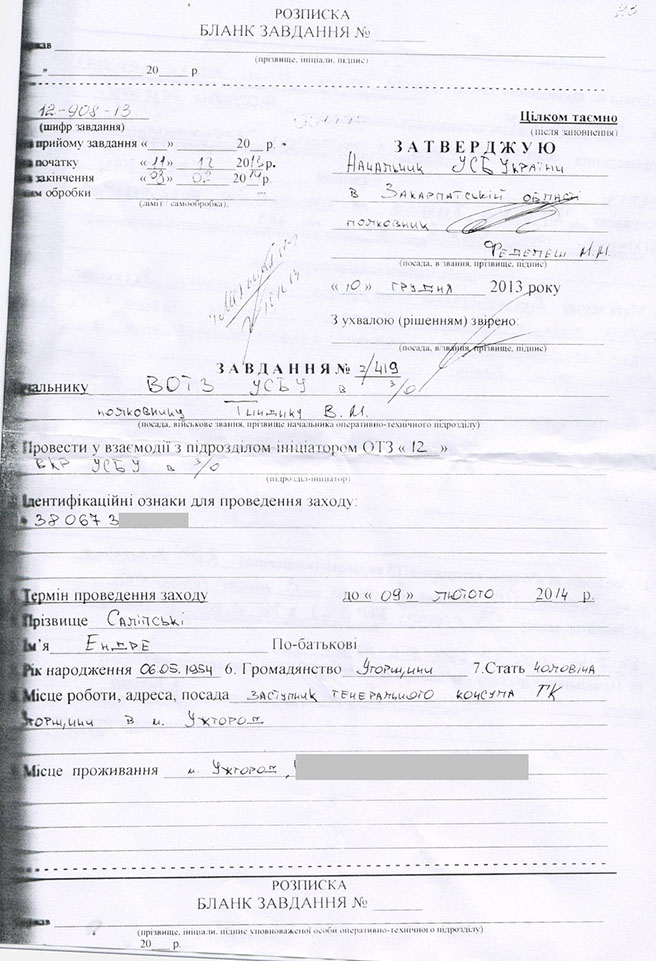 РОЗПИСКА
БЛАНК ЗАВДАННЯ №
(прізвище, ініціали, підпис)
20 р.
12-908-13
(шифр завдання)
Цілком таємно
(після заповнення)
ЗАТВЕРДЖУЮ
прийому завдання « » 20 р.
початку « 11 » 12 2013 р.
закінчення « 03 » 02 2014 р.
обробки
(ліміт / самообробка).
Начальник УСБ України
в Закарпатській області
полковник
Феделеш М.М.
(посада, в/звання, прізвище, підпис)
« 10 » грудня 2013 року
З ухвалою (рішенням) звірено:
(посада, в/звання, прізвище, підпис)
ЗАВДАННЯ № 2/419
чальнику ВОТЗ УСБУ в З/О
полковнику В.М.
(посада, військове звання, прізвище начальника оперативно-технічного підрозділу)
Провести у взаємодії з підрозділом ініціатором ОТЗ « 12 »
ВКР УСБУ в З/О
(підрозділ-ініціатор)
Ідентифікаційні ознаки для проведення заходу:
38 067 3
Термін проведення заходу до « 09 » лютого 2014 р.
Прізвище Саліпські
Ім'я Ендре По-батькові
Рік народження 06.05.1954 6. Громадянство Угорщини 7.Стать чоловіча
Місце роботи, адреса, посада заступник генерального консула ГК
Угорщини в м. Ужгород
Місце проживання м. Ужгород,
РОЗПИСКА
БЛАНК ЗАВДАННЯ №
(прізвище, ініціали, підпис уповноваженої особи оперативно-технічного підрозділу)
20 р.